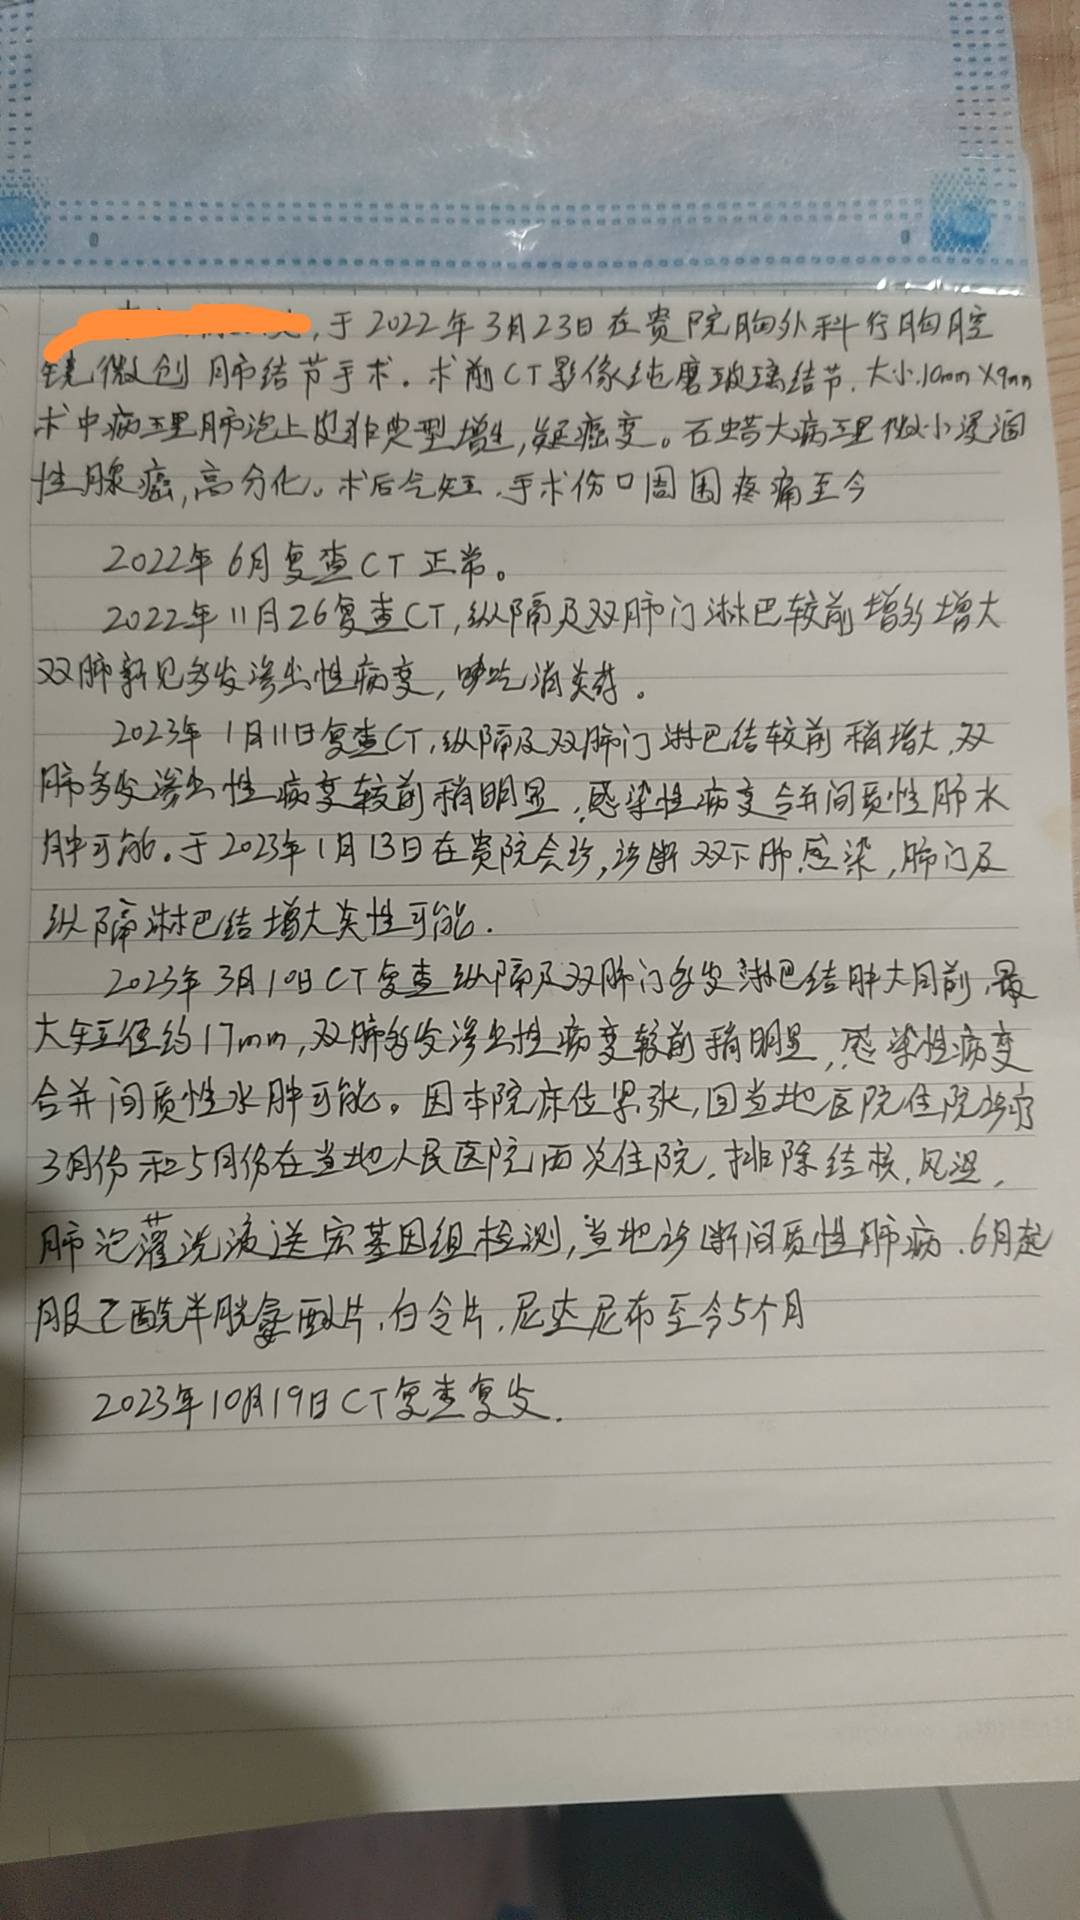 ，于2022年3月23日在贵院胸外科行胸腔
镜微创肺结节手术。术前CT影像纯磨玻璃结节，大小10mm×9mm
术中病理肺泡上皮非典型增生，疑癌变。石蜡大病理微小浸润
性腺癌，高分化。术后气短，手术伤口周围疼痛至今
2022年6月复查CT正常。
2022年11月26复查CT，纵隔及双肺门淋巴较前增多增大
双肺新见多发渗出性病变，吃消炎药。
2023年1月11日复查CT，纵隔及双肺门淋巴结较前稍增大，双
肺多发渗出性病变较前稍明显，感染性病变合并间质性肺水
肿可能。于2023年1月13日在贵院会诊，诊断双下肺感染，肺门及
纵隔淋巴结增大炎性可能．
2023年3月10日CT复查纵隔及双肺门多发淋巴结肿大同前，最
大短径约17mm，双肺多发渗出性病变较前稍明显，感染性病变
合并间质性水肿可能。因本院床位紧张，回当地医院住院诊疗
3月份和5月份在当地人民医院两次住院，排除结核，风湿，
肺泡灌洗液送宏基因组检测，当地诊断间质性肺病．6月起
服乙酰半胱氨酸片，白令片，尼达尼布至今5个月
2023年10月19日CT复查复发．